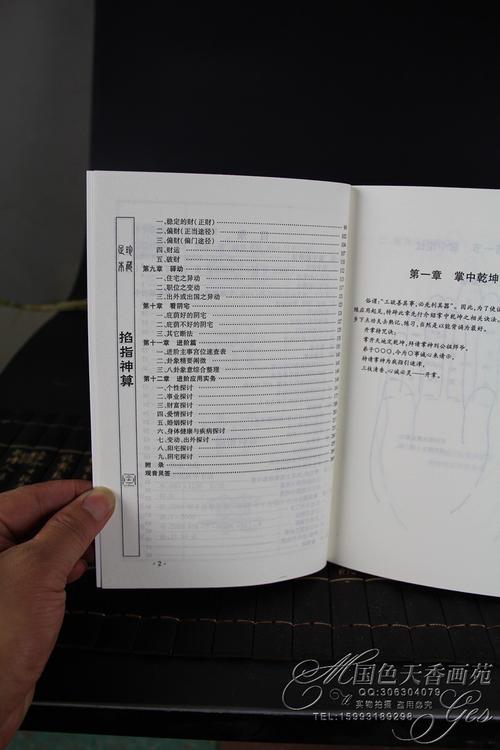 珍藏
足本
掐指神算
一、稳定的财(正财)
二、偏财(正当途径)
三、偏财(偏门途径)
四、财运
五、破财
第九章 驿动
一、住宅之异动
二、职位之变动
三、出外或出国之异动
第十章 看阴宅
一、庇荫好的阴宅
二、庇荫不好的阴宅
三、其它断法
第十一章 进阶篇
一、进阶主事宫位速查表
二、卦象精要阐微
三、八卦象意综合整理
第十二章 进阶应用实务
一、个性探讨
二、事业探讨
三、财富探讨
四、爱情探讨
五、婚姻探讨
六、身体健康与疾病探讨
七、变动、出外探讨
八、阳宅探讨
九、阴宅探讨
附 录
观音灵签
·2·
第一章 掌中乾坤
俗谓:"工欲善其事,必先利其器"。因此,为了使
应用起见,特辟此章先行介绍掌中乾坤之相关诀法。
下工夫去熟记、练习,自然是以能背诵为最好。
开掌符咒诀:
掌开天地定乾坤,拜请掌神到公级师爷。
弟子○○○,今为○事诚心来请示,
拜请掌神为我指引迷津,
三拔清香,心诚必灵——开掌。
国色天香画苑
QQ:306304079
实物拍摄 盗用必究
TEL:15993189298